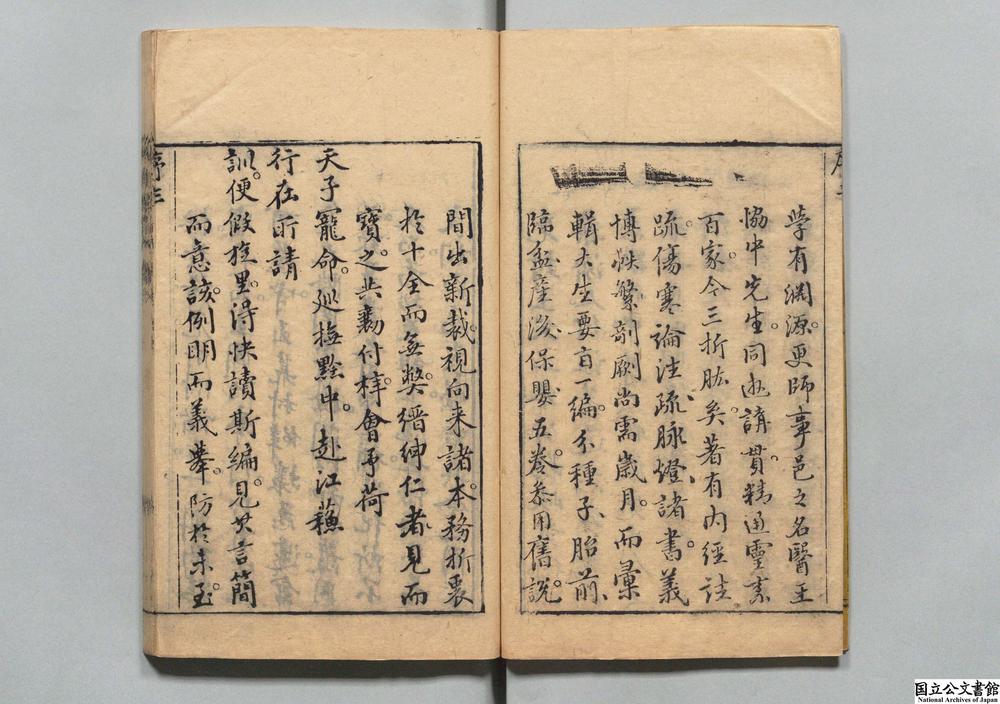 學有淵源更師事邑之名醫王
協中先生同遊講貫精通靈素
百家今三折肱矣著有內經註
疏傷寒論注疏脉燈諸書義
博帙繁剞劂尚需歲月而彙
輯大生要旨一編分種子、胎前、
臨盆產後保嬰五卷叅用舊說
間出新裁視向来諸本務折衷
於十全而無獘縉紳仁者見而
寶之共勷付梓會予荷
天子寵命巡撫黔中赴江蘇
行在所請
訓便假旋里淂快讀斯編見其言簡
而意該例明而義舉防於未
序三
国立公文書館
National Archives of Japan